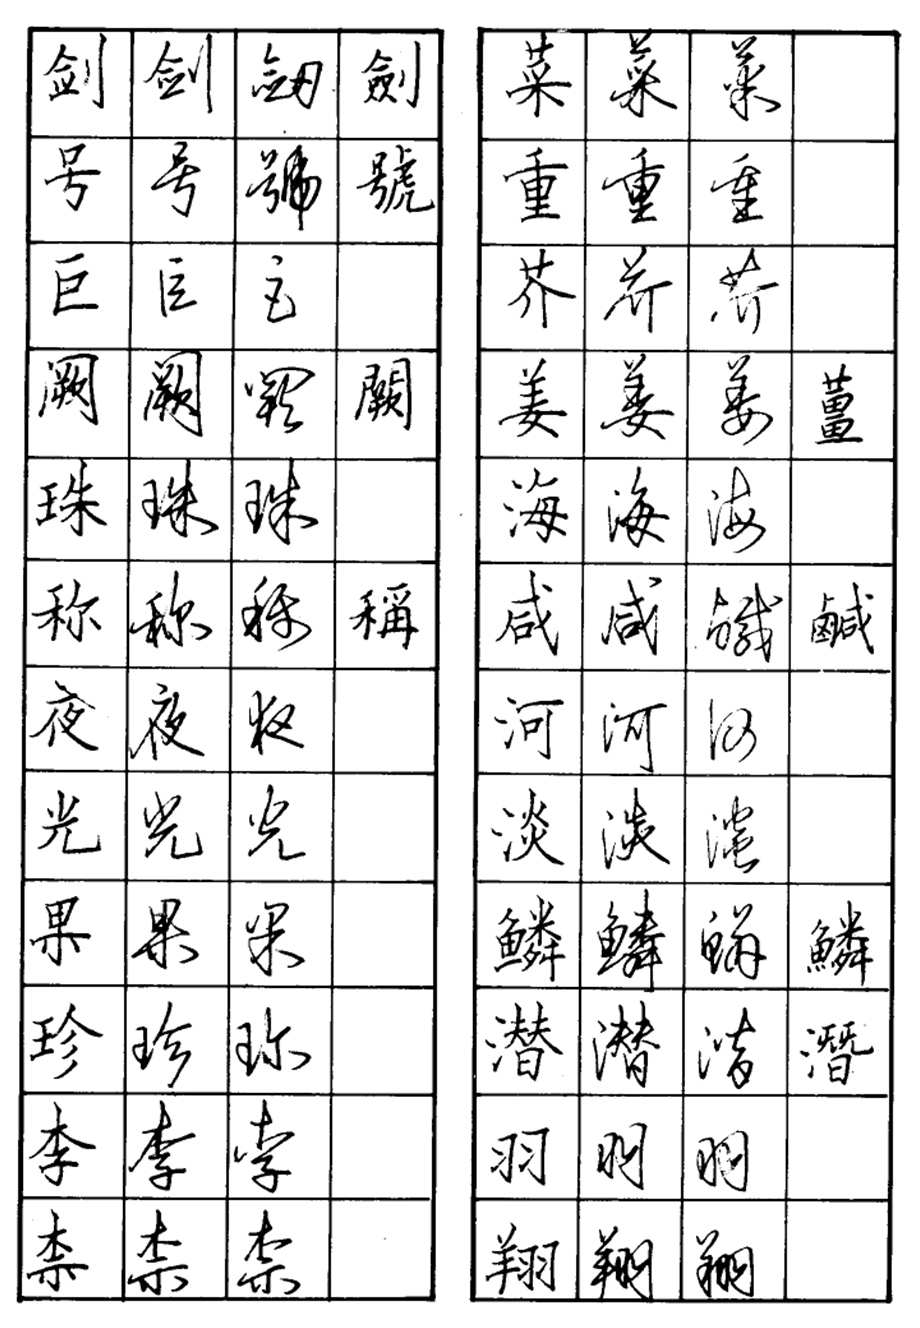 剑 剑 劔 劍
号 号 號 號
巨 巨 巨
阙 阙 阙 闕
珠 珠 珠
称 称 称 稱
夜 夜 夜
光 光 光
果 果 果
珍 珍 珍
李 李 李
柰 柰 柰
菜 菜 菜
重 重 重
芥 芥 芥
姜 姜 姜 薑
海 海 海
咸 咸 鹹 鹹
河 河 河
淡 淡 淡
鳞 鳞 鳞 鱗
潜 潜 潜 潛
羽 羽 羽
翔 翔 翔